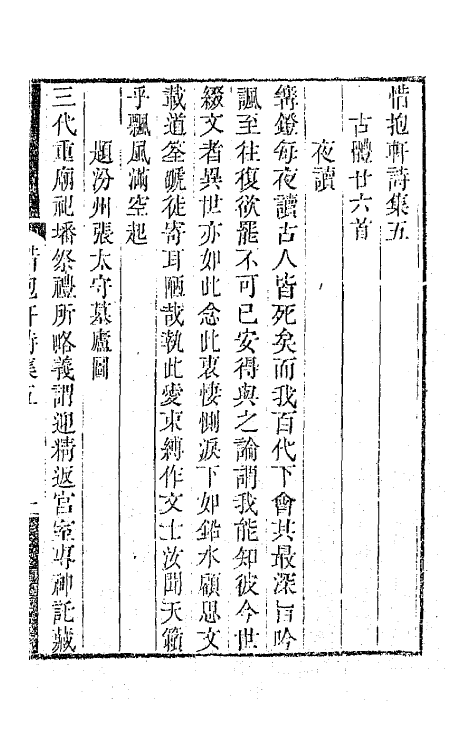 惜抱軒詩集五
古體廿六首
夜讀
篝鐙每夜讀古人皆死矣而我百代下會其最深旨吟
諷至往復欲罷不可已安得與之論謂我能知彼今世
綴文者異世亦如此念此衷悽惻淚下如鉛水顧思文
載道筌蹏徒寄耳陋哉執此愛束縛作文士汝聞天籟
乎飄風滿空起
題汾州張太守墓廬圖
三代重廟祀墦祭禮所略義謂迎精返宮室専神託藏
惜抱軒詩集五
一